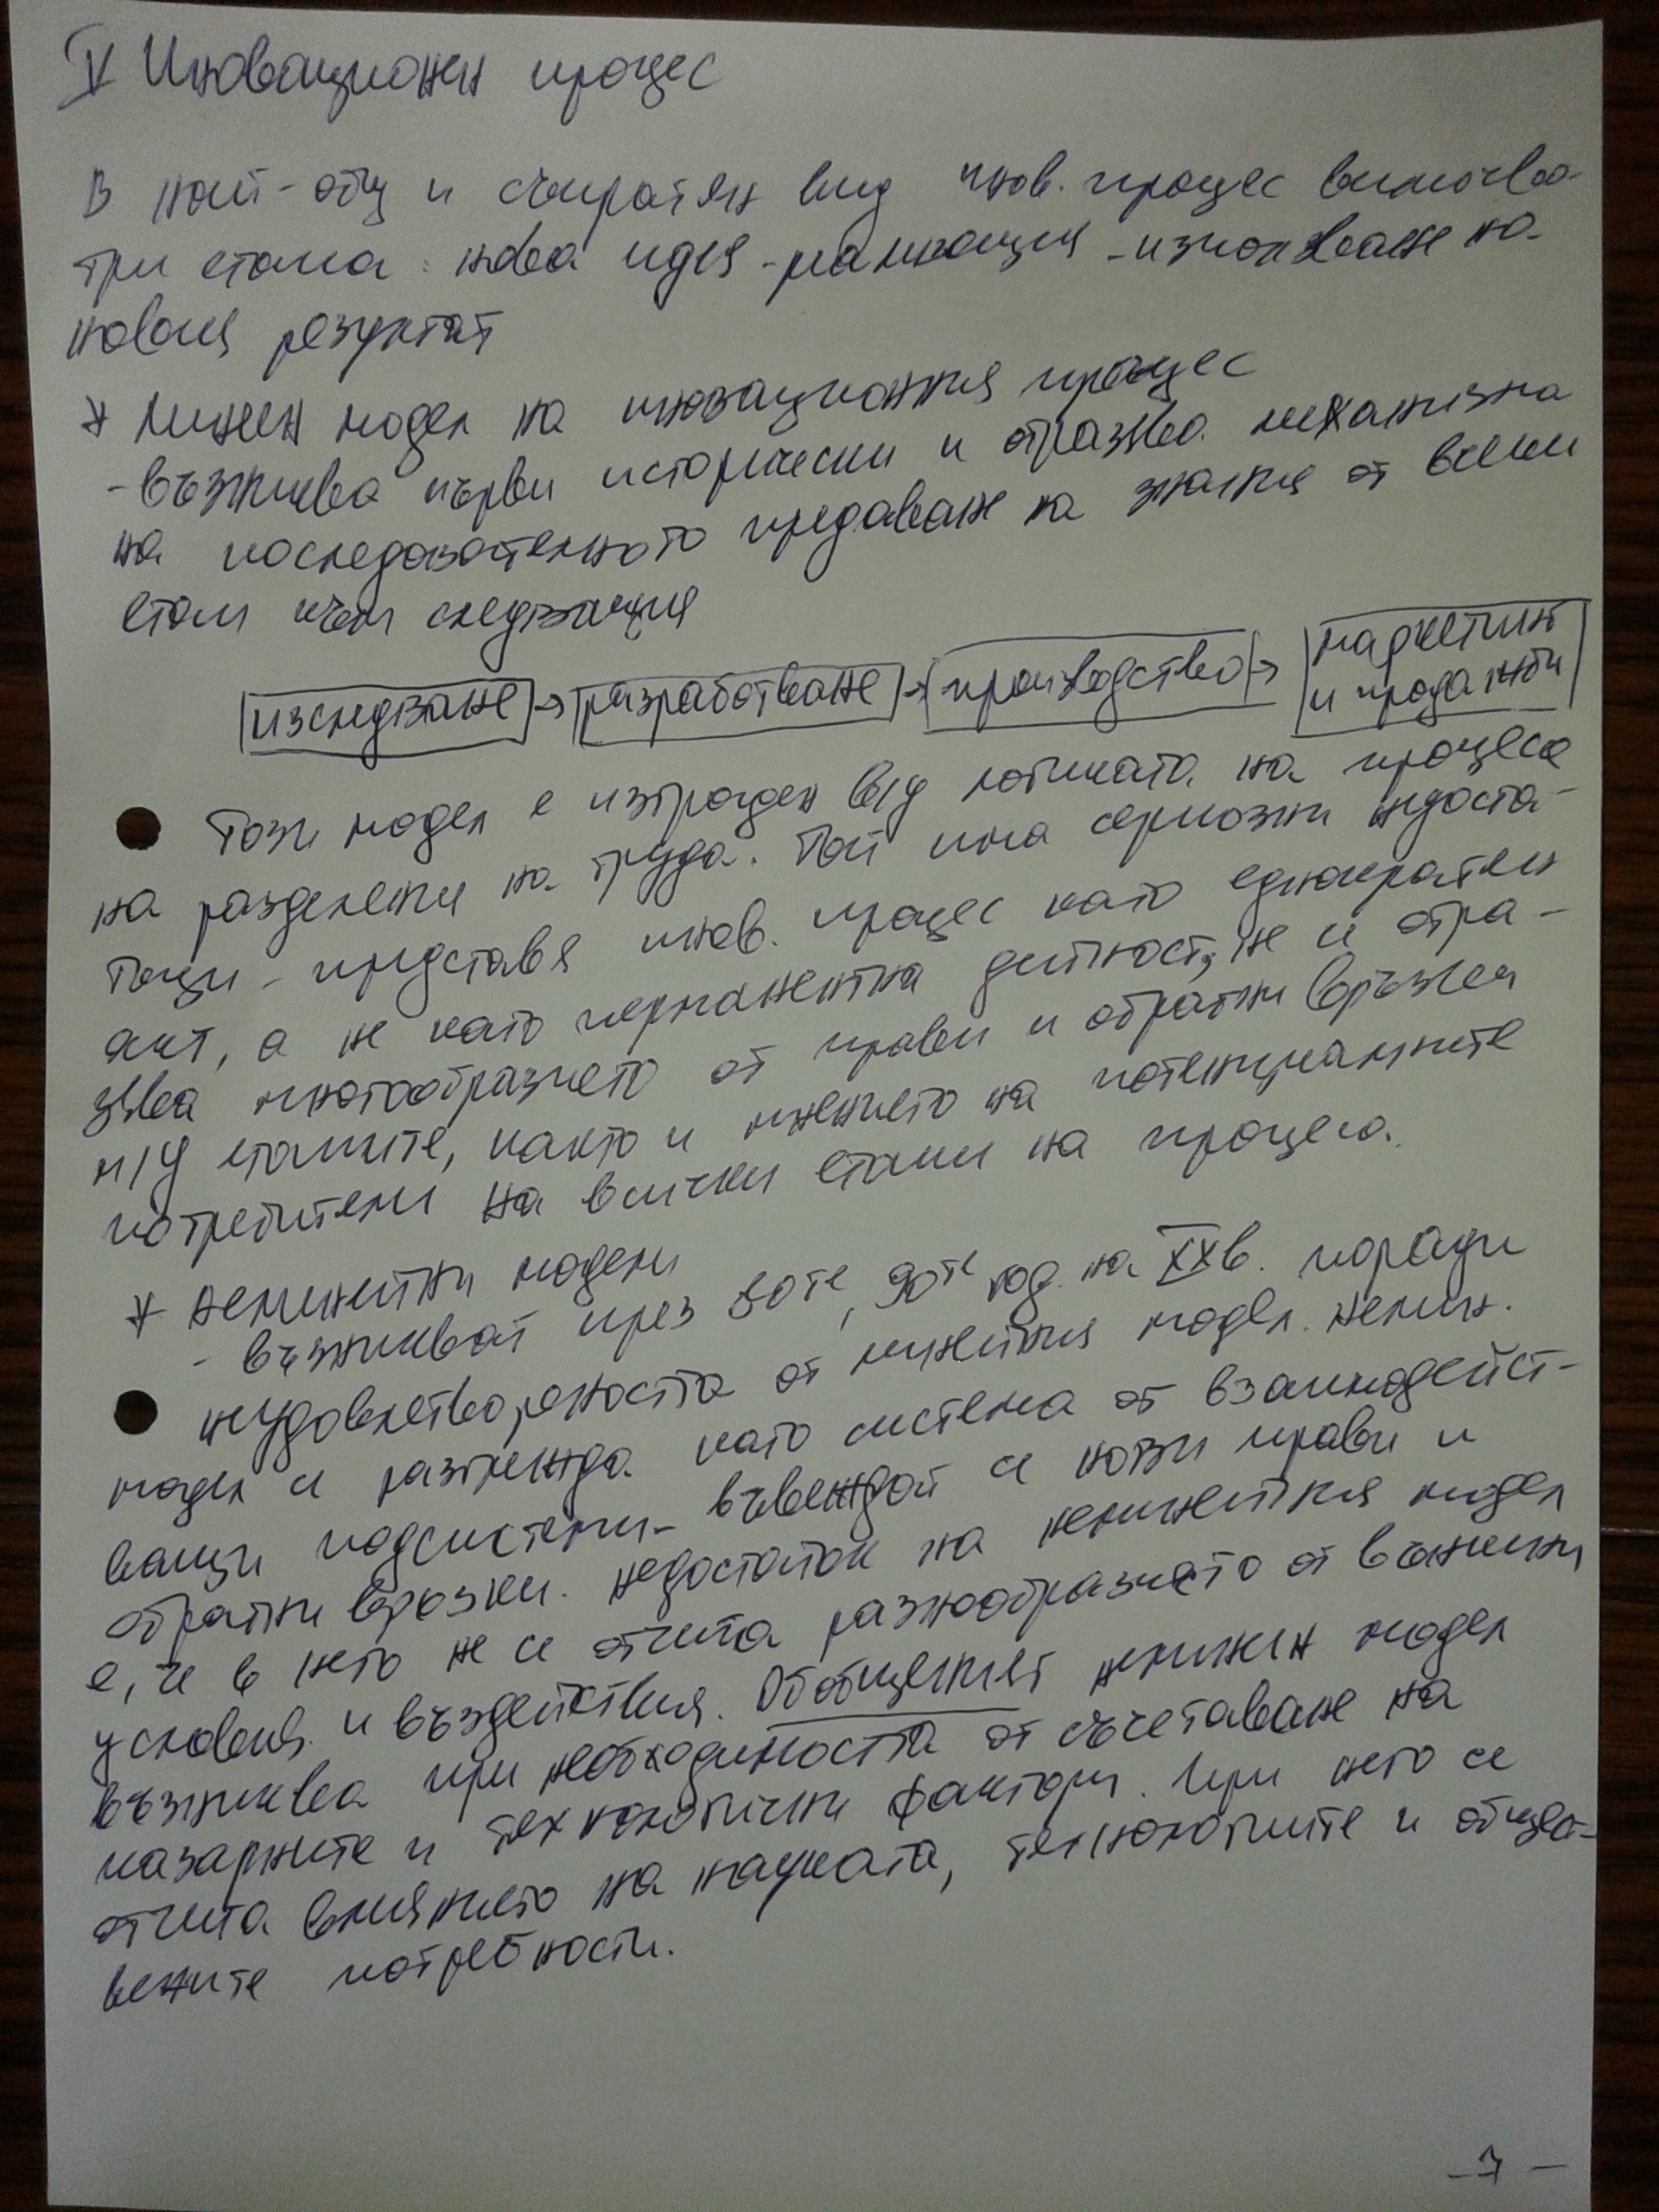 V Иновационен процес
В най-общ и съкратен вид инов. процес включва
три етапа: нова идея - реализация - използване на
новия резултат
* Линеен модел на иновационния процес
- възниква първи исторически и отразява механизма
на последователното предаване на знания от всеки
етап към следващия
изследване → разработване → производство → маркетинг
и продажби
Този модел е изграден в/у логиката на процеса
на разделения на труда. Той има сериозни недоста-
тъци - представя инов. процес като еднократен
акт, а не като перманентна дейност, не и отра-
зява многообразието от прави и обратни връзки
м/у етапите, както и мнението на потенциалните
потребители на всички етапи на процеса.
* Нелинейни модели
- възникват през 80те, 90те год. на XXв. поради
неудовлетвореността от линейния модел. Нелин.
модел се разглежда като система от взаимодейст-
ващи подсистеми - въвеждат се нови прави и
обратни връзки. Недостатък на нелинейния модел
е, че в него не се отчита разнообразието от външни
условия и въздействия. Обобщеният нелинеен модел
възниква при необходимостта от съчетаване на
пазарните и технологични фактори. При него се
отчита влиянието на науката, технологиите и общест-
вените потребности.
- 7 -